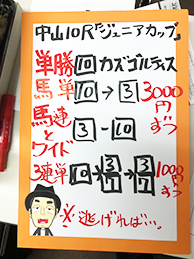 中山10R『ジュニアカップ』
単勝 10 カズゴルティス
馬単 10→3 3000円ずつ
馬連とワイド 3-10
3連単 10→3/7→3/7 1000円ずつ
※逃げれば…。